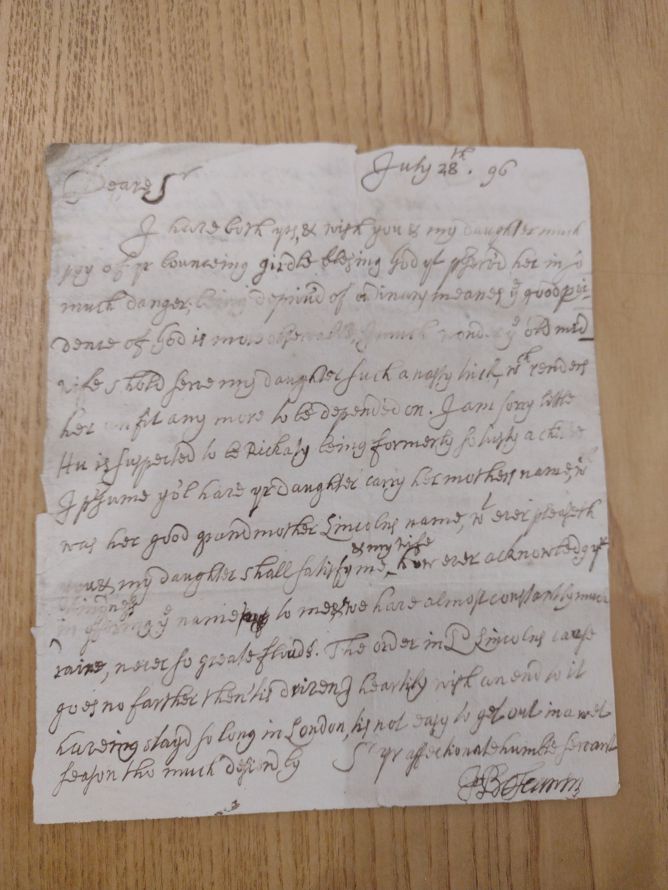 July 28th. 96
Deare Sr
I have both yrs, & wish you & my daughter much
joy of yr bounceing girdle blesing God yt p'serv'd her in so
much danger, being depriv'd of ordinary meanes ye good pvi-
dence of God is more observable, I much wonder ye old mid
wife shold serve my daughter such a nasty trick, wch renders
her unfit any more to be depended on. I am sorry little
Hu is suspected to be Rickaty being formerly so lusty a
I p'sume yo'l have yr daughter carry her mothers name, wch
was her good grandmother Lincolns name, wt ever pleaseth
you & my daughter shall satisfy me & my wife how ever acknowledg yr
kindness
in offering ye name to me, we have almost constantly much
raine, never so greate flouds. The order in L Lincolns cause
goes no farther then tis driven, I heartily wish an end to it
haveing stayd so long in London, tis not easy to get out in a wet
season tho much desir'd by Sr yr affectionate humble servant